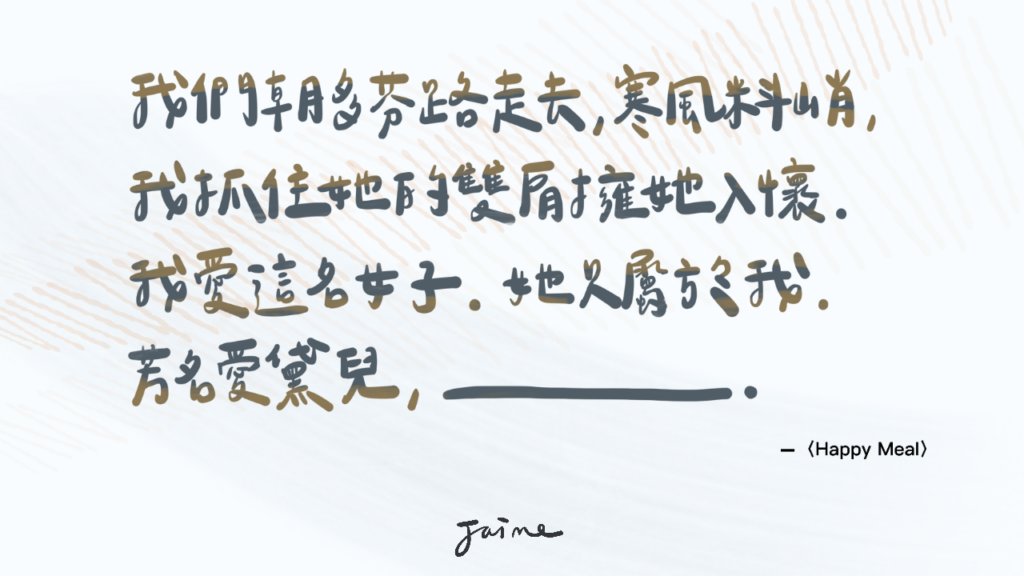 我們朝多芬路走去,寒風料峭,
我抓住她的雙肩擁她入懷.
我愛這名女子.她只屬於我.
芳名愛黛兒,________.
—〈Happy Meal〉
Jaime